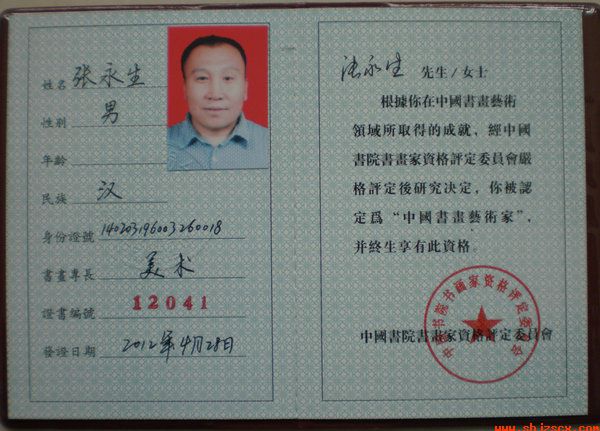 姓名 张永生
性別 男
年齡
民族 汉
身份證號 140203196003260018
書畫專長 美术
證書編號 12041
發證日期 2012年4月28日
张永生 先生/女士
根據你在中國書畫藝術
領域所取得的成就，經中國
書院書畫家資格評定委員會嚴
格評定後研究决定，你被認
定爲“中國書畫藝術家”，
并終生享有此資格。
中國書院書畫家資格評定委員會
中国书院书画家资格评定委员会
www.sbjzscx.com